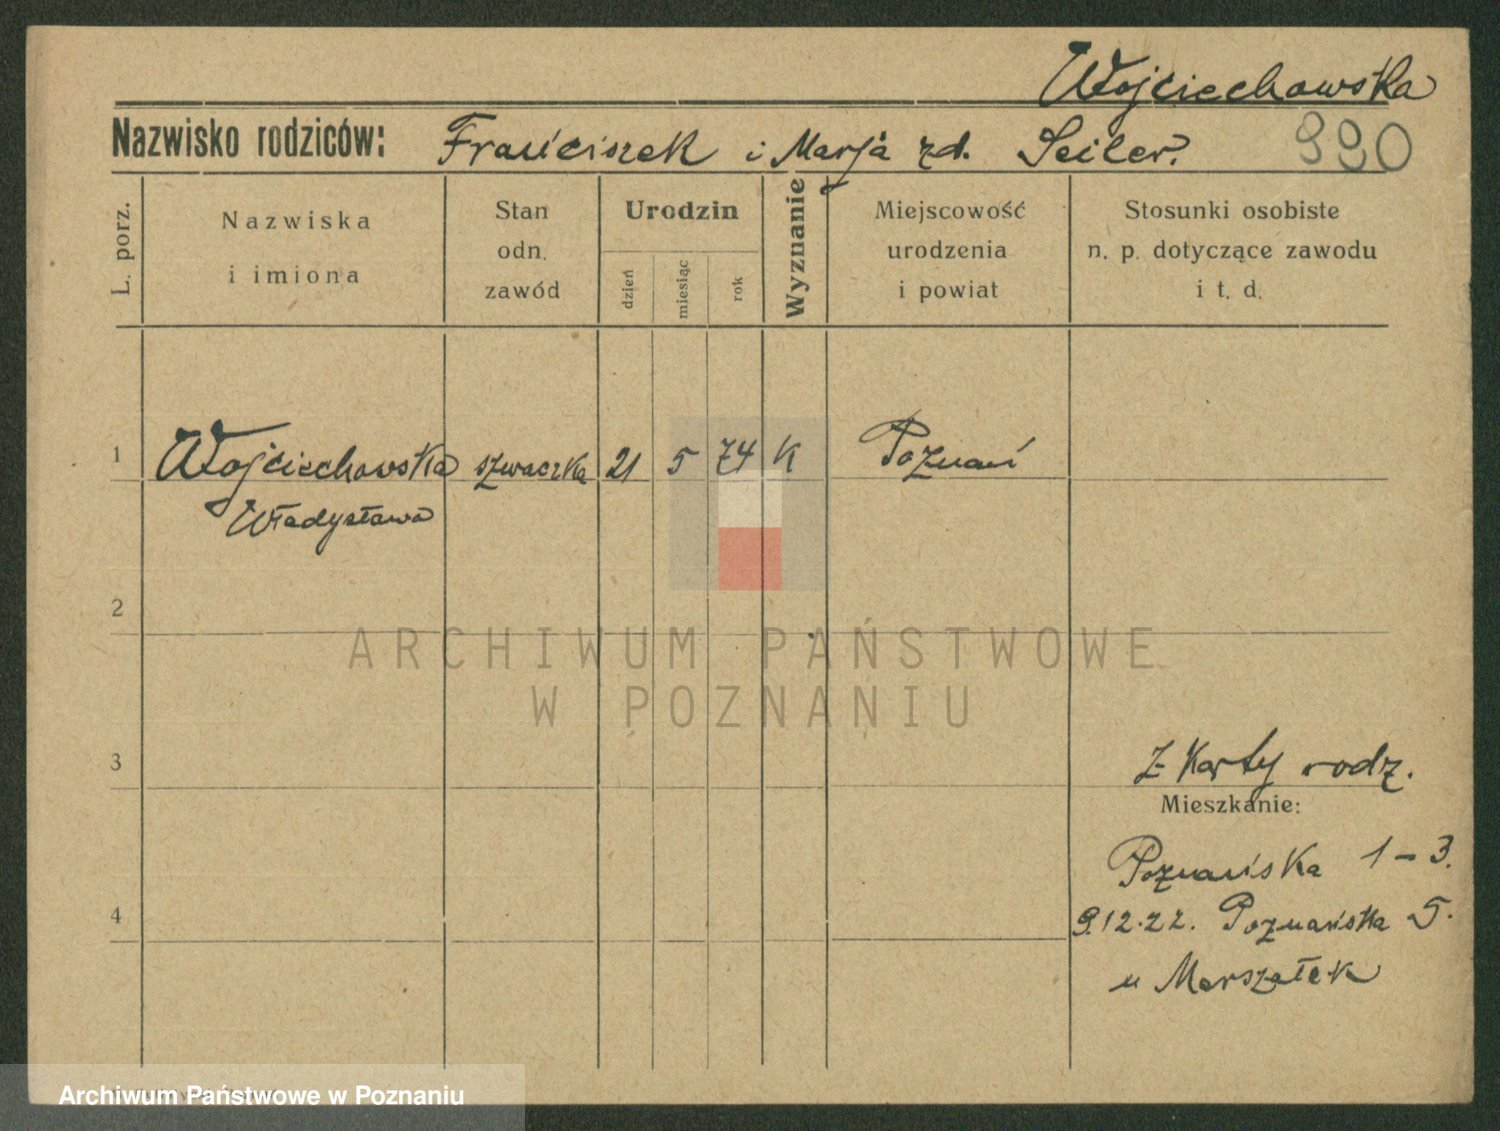 Wojciechowska
Nazwisko rodziców: Franciszek i Marja zd. Seiler.
990
L. porz.
Nazwiska
i imiona
Stan
odn.
zawód
Urodzin
dzień
miesiąc
rok
Wyznanie
Miejscowość
urodzenia
i powiat
Stosunki osobiste
n. p. dotyczące zawodu
i t. d.
1 Wojciechowska szwaczka 21 5 74 K Poznań
Władysława
2
ARCHIWUM PAŃSTWOWE
W POZNANIU
3
Z karty rodz.
Mieszkanie:
Poznańska 1-3.
4
9.12.22. Poznańska 5.
u Marszałek
Archiwum Państwowe w Poznaniu